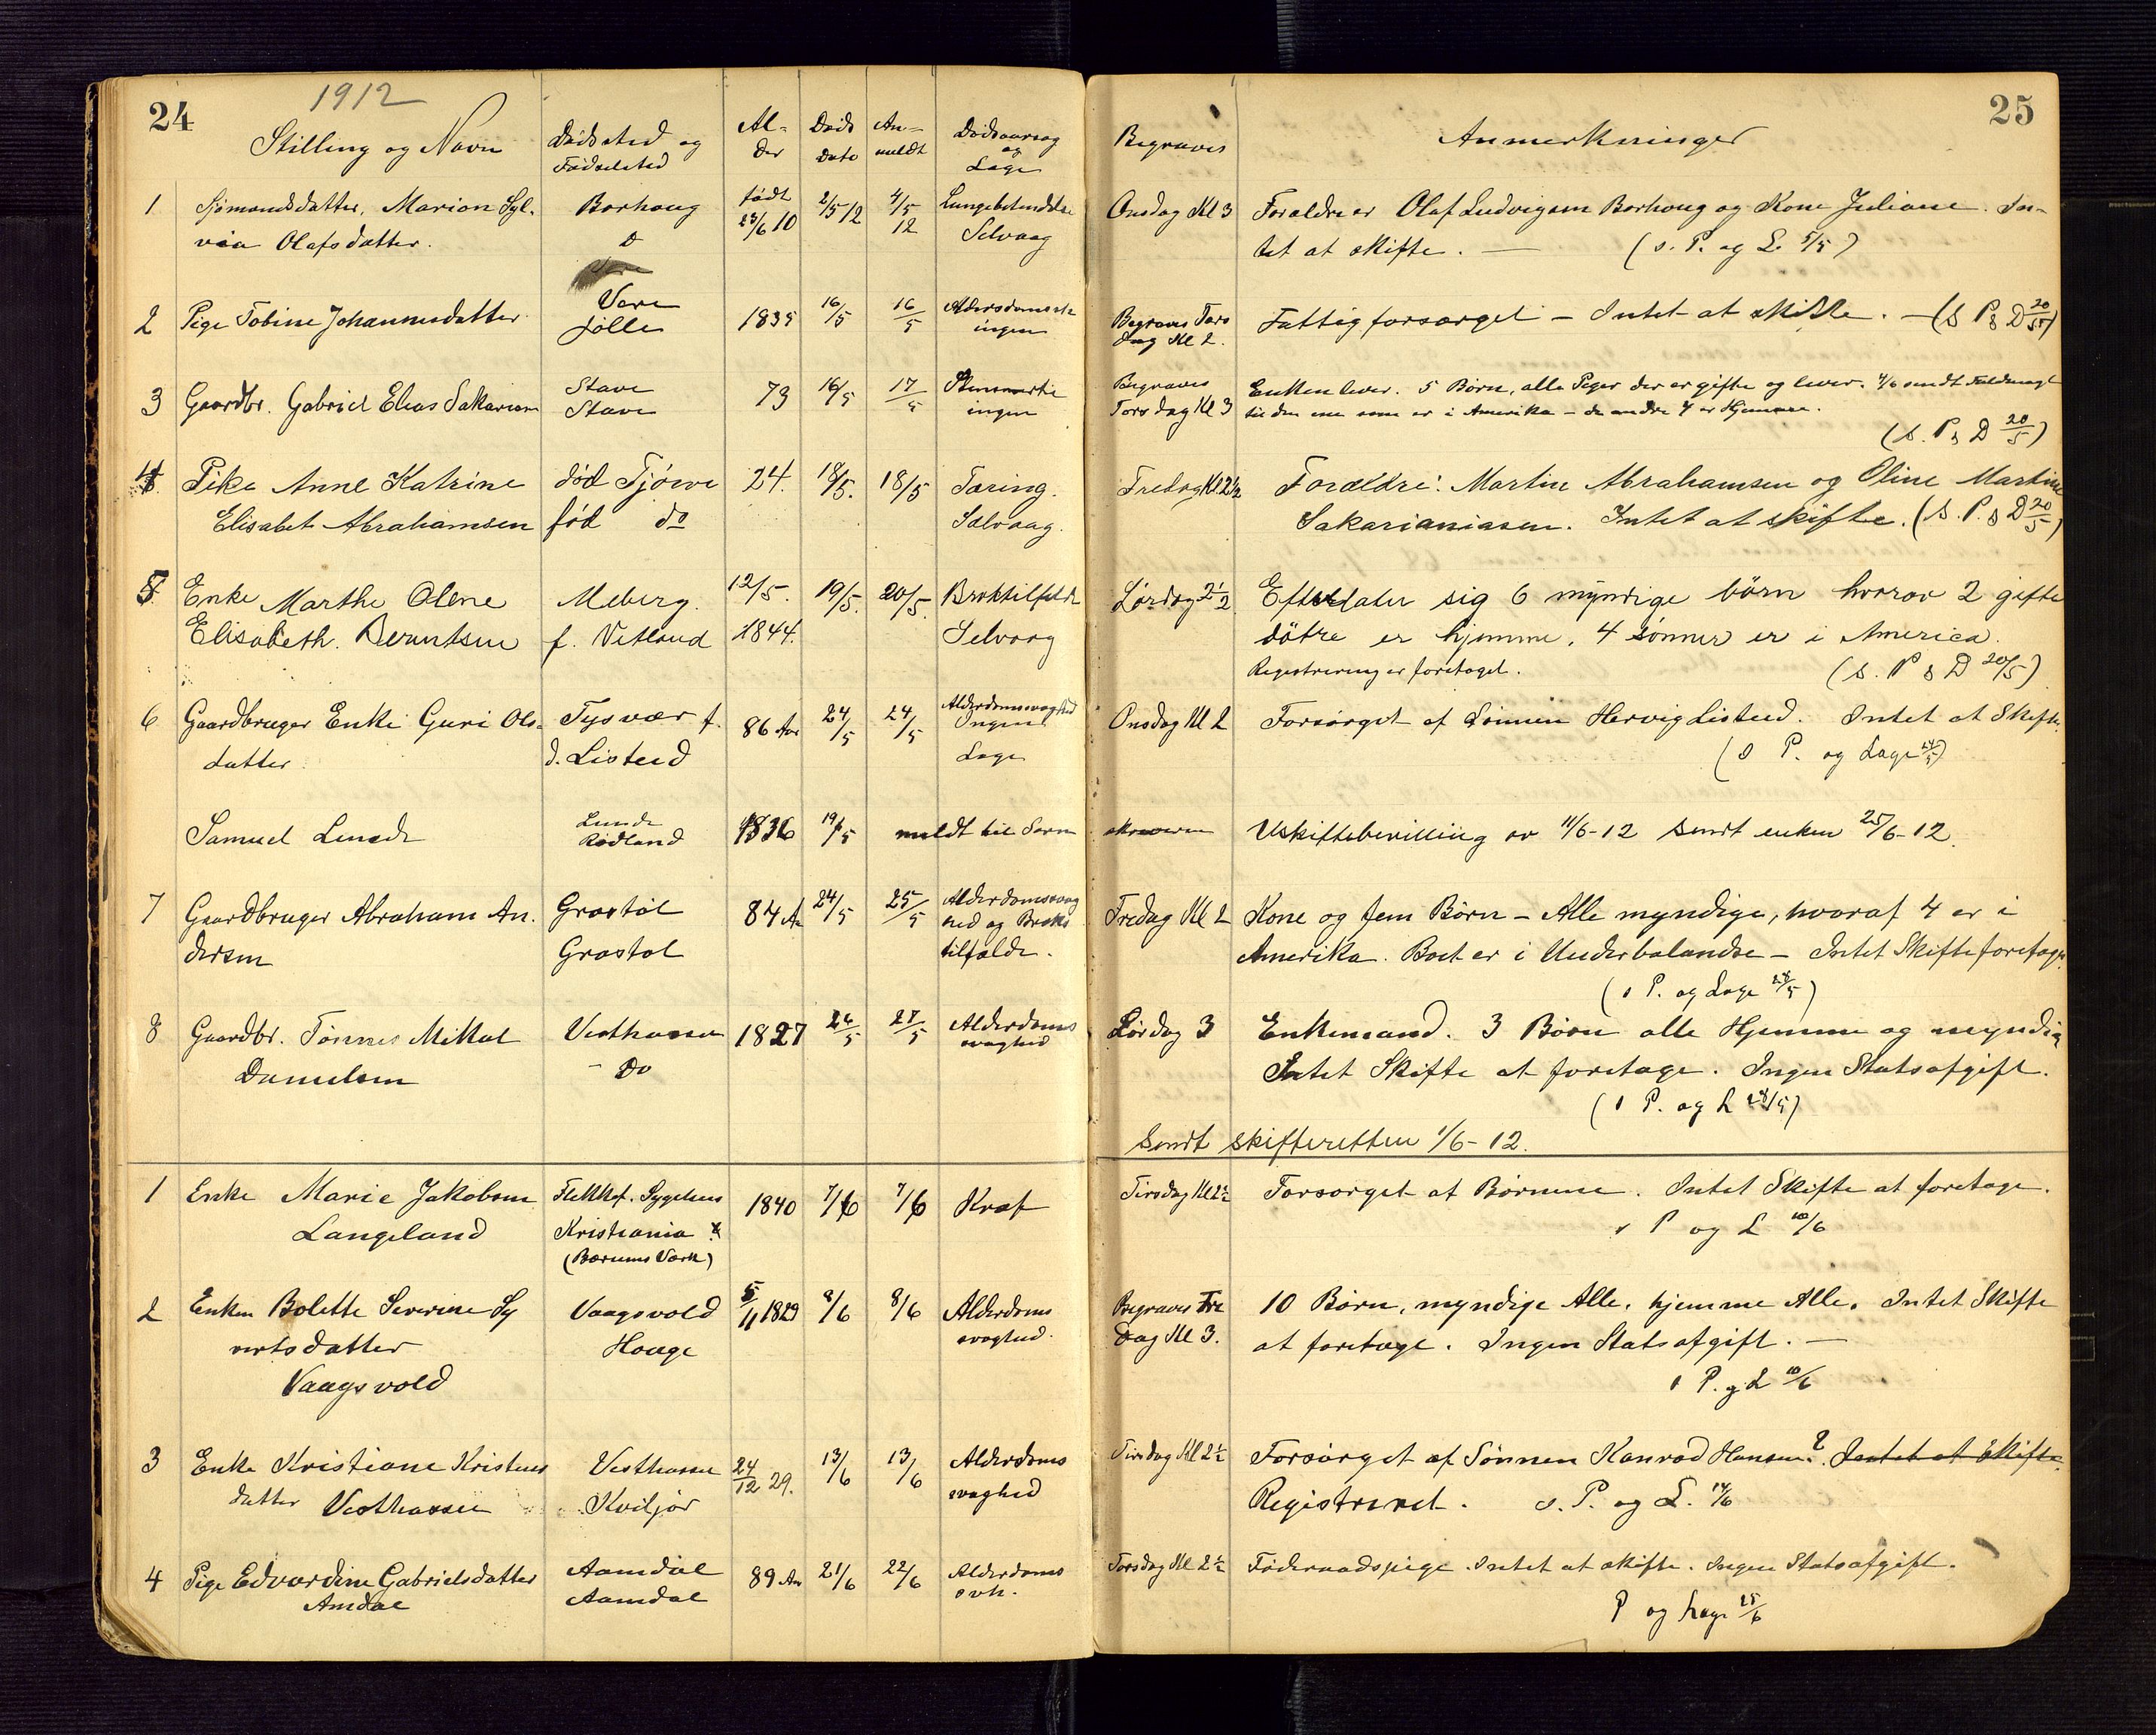 24
1912
25
Stilling og Navn Dødssted og Fødselsted Al-der Døds Dato An-meldt Dødsaarsag og Læge Begraves Anmerkninger
1 Sjømandsdatter, Marion Syl- Borhaug født 2/5 12 4/5 Lungebetændelse Onsdag Kl 3 Foraldre er Olaf Ludvigsen Borhoug og Kone Juliane. In-
via Olafsdatter. D 23/6 10 12 Selvaag tet at skifte. — (s. P. og L. 5/5)
2 Pige Tobine Johannesdatter Vere 1835 16/5 16/5 Begraves Tors Fattigforsørget – Intet at skifte. – (s P & D 20/5)
Jølle ingen dag Kl 2.
3 Gaardbr. Gabriel Elias Sakarias Stave 73 16/5 17/5 Begraves Enken lever. 5 Børn, alle Piger der er gifte og lever. 4/6 sendt
Stave ingen Torsdag Kl 3 til den ene som er i Amerika – de andre 4 er Hjemme.
(s. P & D 20/5)
4 Pike Anne Katrine død Tjórve 24. 18/5. 18/5 Tæring. Fredag Kl. 2 1/2 Forældre: Martin Abrahamsen og Oline Martine
Elisabet Abrahamsen fød do Sælvaag. Sakariasen. Intet at skifte. (s. P. & D 20/5)
5 Enke Marthe Olene Meberg. 12/5. 19/5. 20/5. Broktilfælde Lørdag 2 1/2 Efterlater sig 6 myndige børn hvorav 2 gifte
Elisabeth. Berntsen f. Vetland 1844. Selvaag døtre er hjemme, 4 sønner er i America.
Registrering er foretaget. (s. P & D 20/5)
6 Gaardbruger Enke Guri Ols- Tysvær f. 86 Aar 24/5 24/5 Alderdomsvaghed Onsdag Kl 2 Forsørget af Sønnen Hervig Listeid. Intet at Skifte.
datter d. Listeid Ingen Læge (s P. og Læge 24/5)
Samuel Lunde Lunde 1836 19/5 meldt til Sorenskriveren Uskiftebevilling av 11/6-12 sendt enken 25/6-12.
Rødland
7 Gaardbruger Abraham An- Grostøl 84 Aar 24/5 25/5 Alderdomsvag Fredag Kl 2 Kone og fem Børn – Alle myndige, hvoraf 4 er i
dersen Grostøl hed og Brok Amerika. Boet er i Underbalandse – Intet Skifte foretages
tilfælde. (s P. og Læge 28/5)
8 Gaardbr. Tønnes Mikal Vesthassen 1827 26/5 27/5 Alderdoms Lørdag 3 Enkemand. 3 Børn alle Hjemme og myndig
Danielsen – Do svaghed Intet Skifte at foretage. Ingen Statsafgift.
(s P. og L 28/5)
Sendt skifteretten 1/6-12.
1 Enke Marie Jakobsen Flekkef. Sygehus 1840 7/6 7/6 Kræf Tirsdag Kl 2 1/2 Forsørget af Børnene. Intet Skifte at foretage.
Langeland Kristiania s P og L 10/6
(Bærums Værk)
2 Enken Bolette Severine Sy Vaagsvold 5/11 1829 8/6 8/6 Alderdoms Begraves Fre 10 Børn, myndige Alle, hjemme Alle. Intet Skifte
vertsdatter Hauge svaghed. dag Kl 3. at foretage. Ingen Statsafgift. –
Vaagsvold s P. og L 10/6
3 Enke Kristiane Kristens Vesthassen 24/12 29. 13/6 13/6 Alderdoms Tirsdag Kl 2 1/2 Forsørget af Sønnen Konrad Hansen?. Intet at skifte.
datter Vesthassen Kviljor svaghed Registreret. s. P. og L. 14/6
4 Pige Edvardine Gabrielsdatter Aamdal 89 Aar 21/6 22/6 Alderdoms Torsdag Kl 2 1/2 Føderaadspige. Intet at skifte. Ingen Statsafgift.
Amdal Aamdal svh. P og Læge 25/6